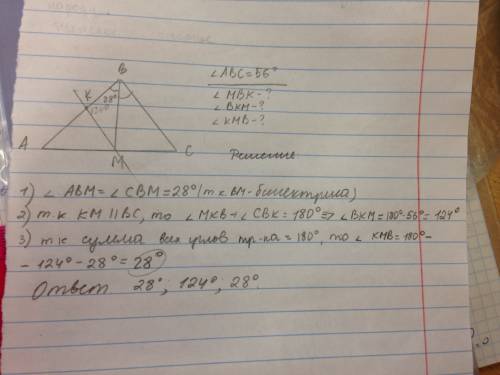 B
∠ABC = 56°
K
28°
124°
∠MBK - ?
∠BKM - ?
∠KMB - ?
A
M
C
Решение
1) ∠ABM = ∠CBM = 28° (т.к BM - биссектриса)
2) т.к KM || BC, то ∠MKB + ∠CBK = 180° => ∠BKM = 180°-56° = 124°
3) т.к сумма всех углов тр-ка = 180°, то ∠KMB = 180° -
- 124° - 28° = 28°
Ответ 28°; 124°; 28°.